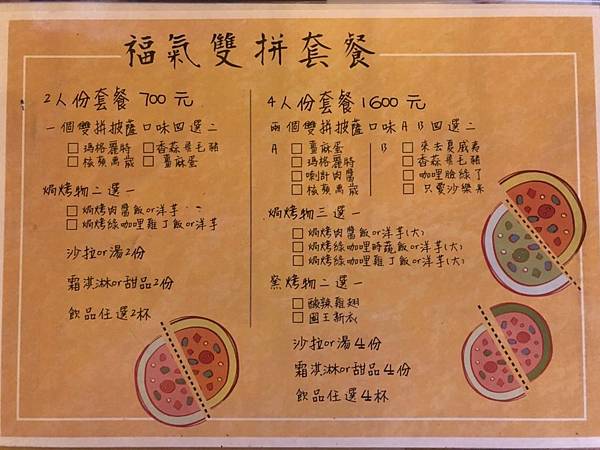 福氣雙拼套餐
2人份套餐 700元
一個雙拼披薩口味四選二
□瑪格麗特 □香蒜鬃毛豬
□檢蘋萬歲 □薑麻蛋
焗烤物二選一
□焗烤肉醬飯or洋芋
□焗烤綠咖哩雞丁飯or洋芋
沙拉or湯2份
霜淇淋or甜品2份
飲品任選2杯
4人份套餐1600元
兩個雙拼披薩口味AB四選二
A □薑麻蛋
□瑪格麗特
□喇計肉醬
□檢蘋萬歲
B □來去夏威夷
□香蒜鬃毛豬
□咖哩臉綠了
□只要沙樂米
焗烤物三選一
□焗烤肉醬飯or洋芋(大)
□焗烤綠咖哩時蔬飯or洋芋(大)
□焗烤綠咖哩雞丁飯or洋芋(大)
窯烤物二選一
□酸辣雞翅
□國王新衣
沙拉or湯4份
霜淇淋or甜品4份
飲品任選4杯